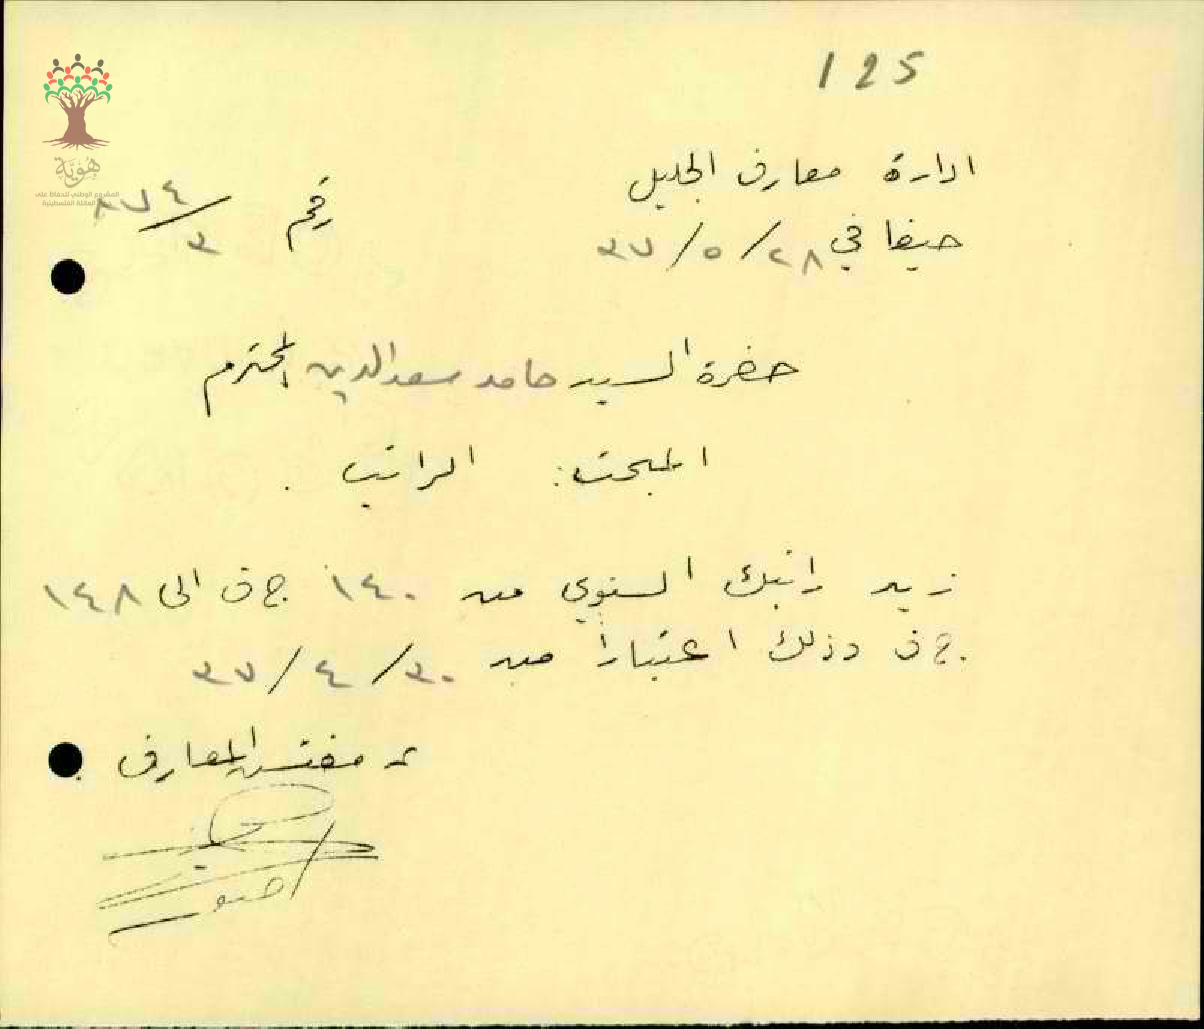 125
هُويَّة
المشروع الوطني للحفاظ على
العائلة الفلسطينية
ادارة معارف الجليل
رقم ٨٧٤/٣
حيفا في ٢٨/٥/٣٧
حضرة السيد حامد سعدالدين المحترم
المبحث: الراتب.
زيد راتبك السنوي من ١٤٠ ج ف الى ١٤٨
ج ف وذلك اعتباراً من ٣٠/٤/٣٧
مفتش المعارف